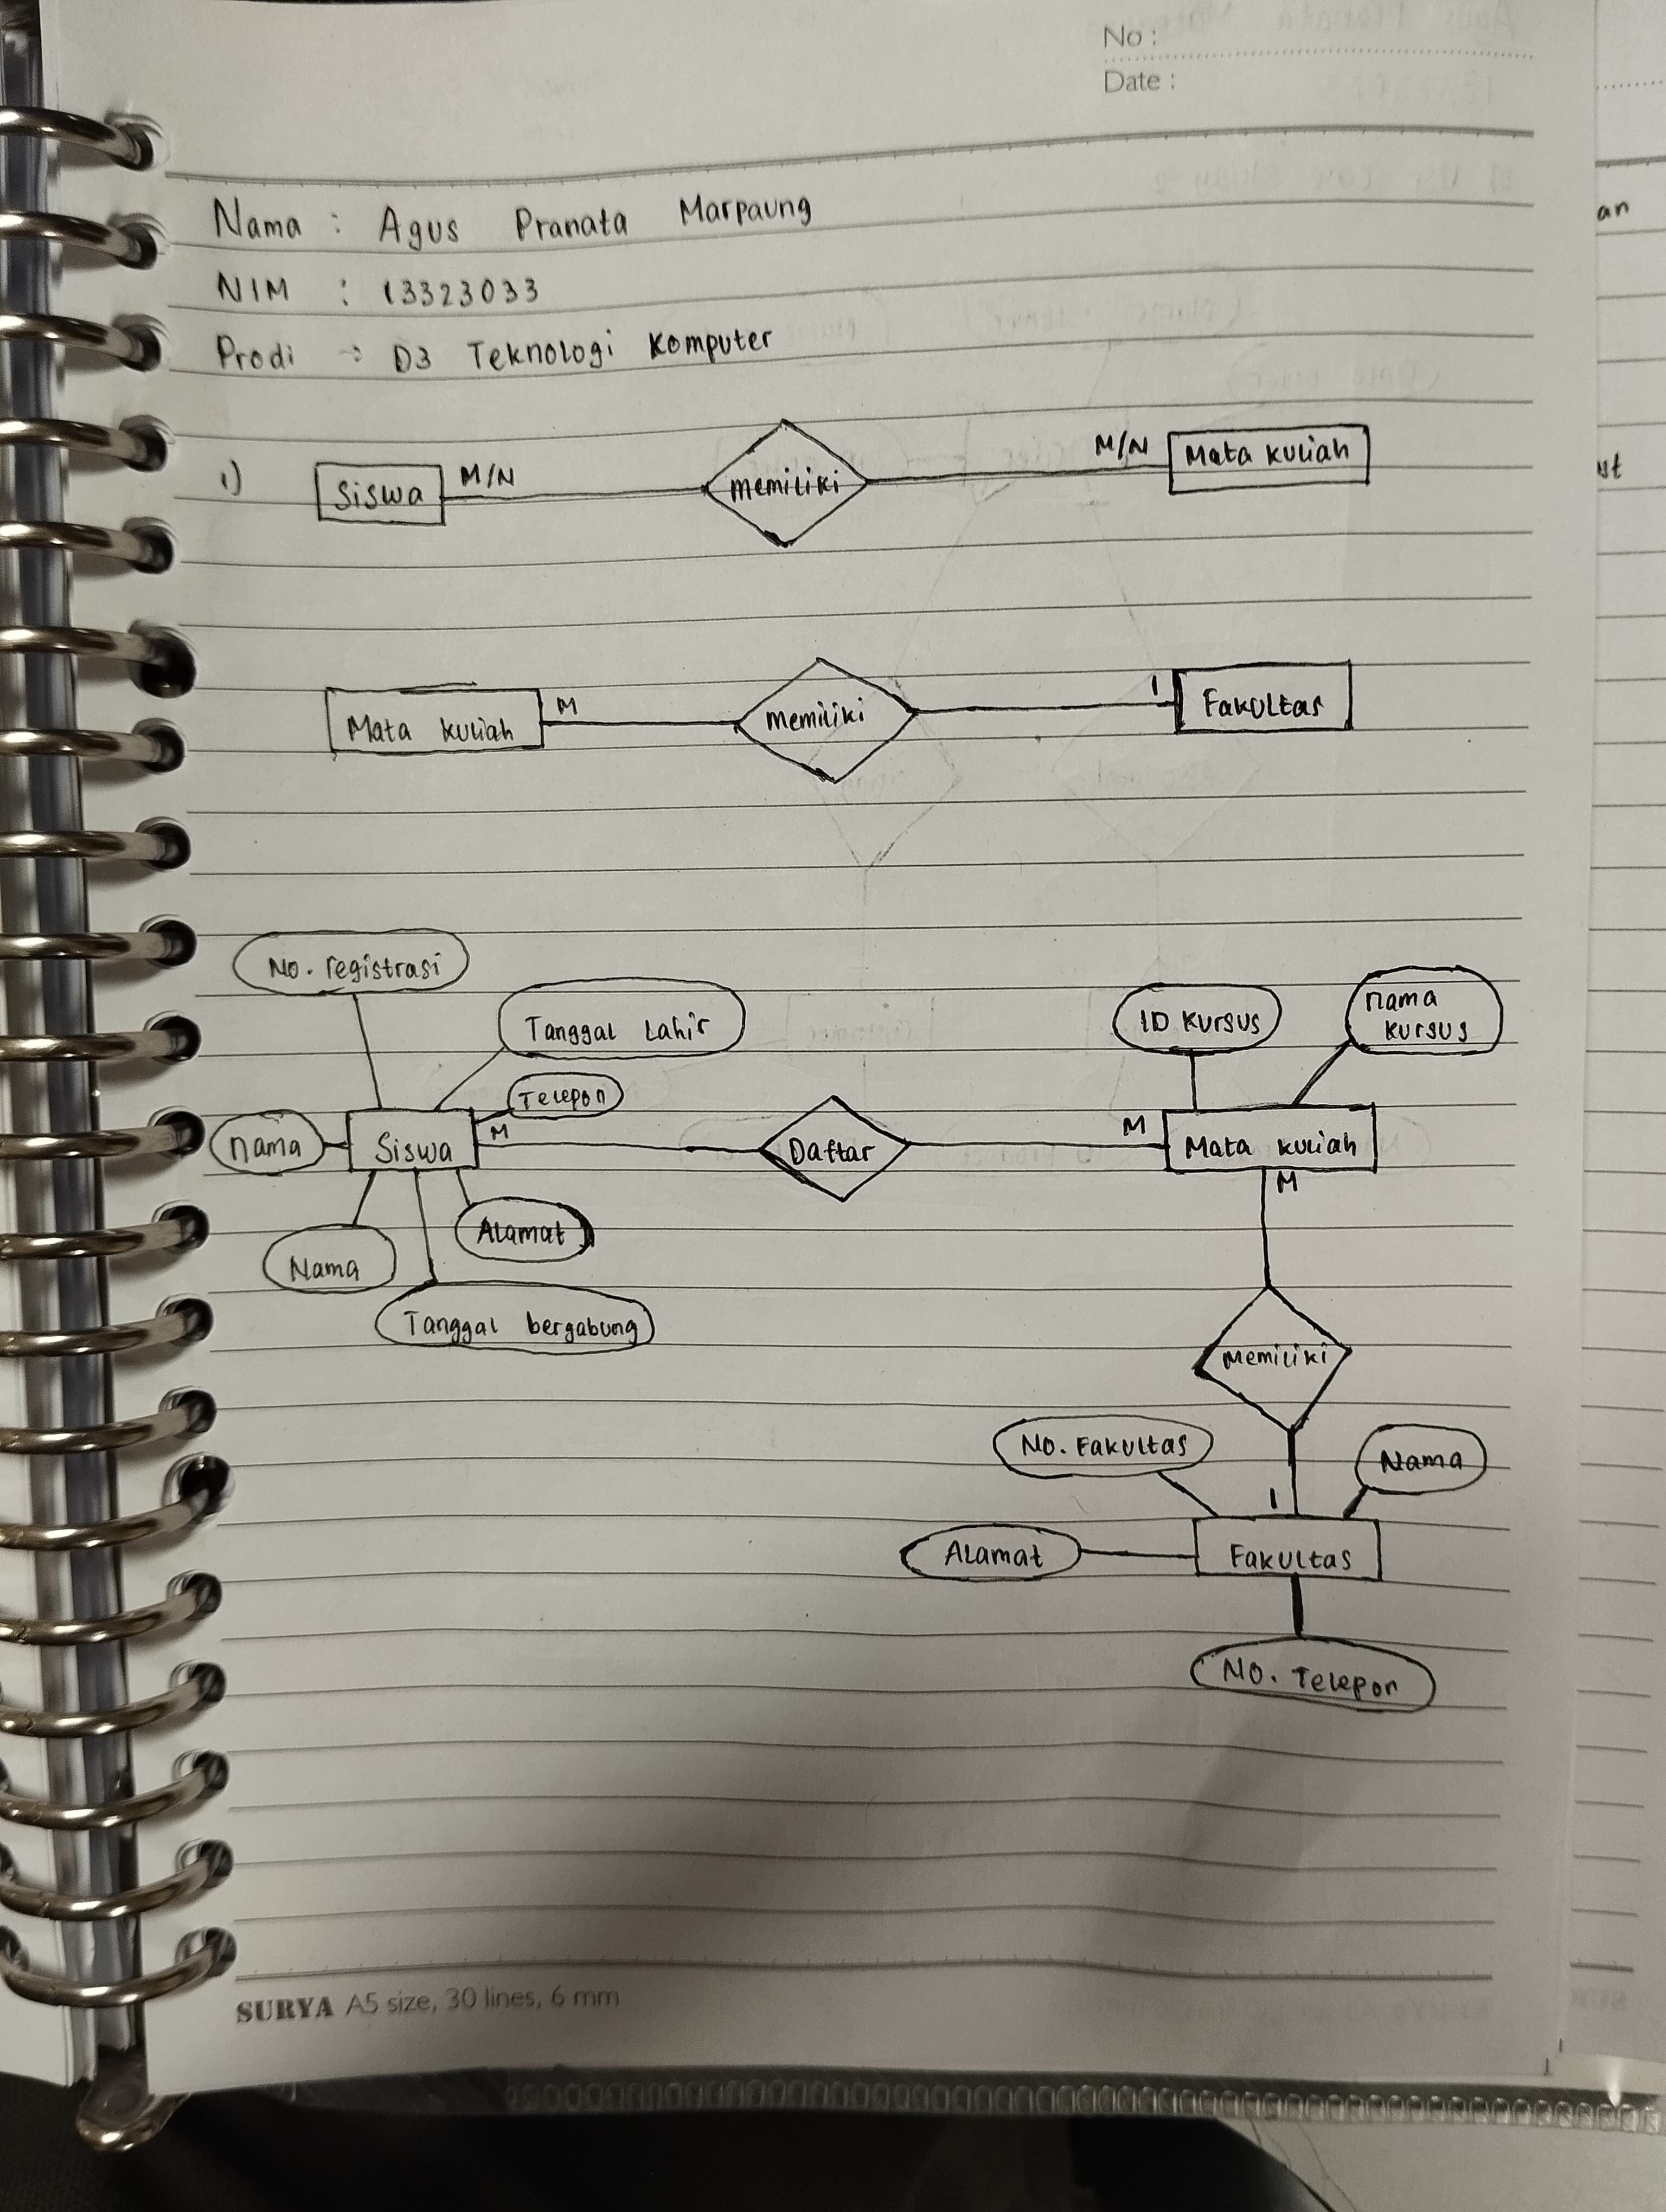 No :
Date :
Nama : Agus Pranata Marpaung
NIM : 13323033
Prodi : D3 Teknologi Komputer
1) Siswa M/N memiliki M/N Mata kuliah
Mata kuliah M memiliki 1 Fakultas
No. registrasi
Tanggal Lahir
ID Kursus
nama
kursus
Telepon
nama Siswa M Daftar M Mata kuliah
M
Alamat
Nama
Tanggal bergabung
Memiliki
No. Fakultas
Nama
1
Alamat Fakultas
No. Telepon
SURYA A5 size, 30 lines, 6 mm
an